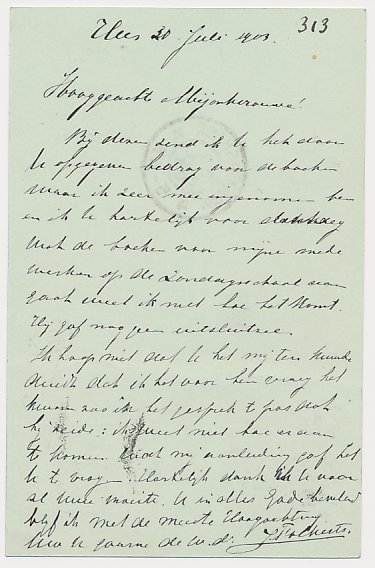 313
20 Juli 1903.
Hooggeachte Mejonkvrouwe!
Bij dezen zend ik U het door
U opgegeven bedrag van de boeken
waar ik zeer mee ingenomen ben
en ik U hartelijk voor dank
Wat de boeken voor mijne mede
werken op de Zondagsschool aan
gaat weet ik niet hoe het komt.
Zij gaf nog geen
Ik hoop niet dat U het mij ten kwade
duidt dat ik het voor hen vroeg het
kwam zoo in het gesprek te pas dat
zij zeide: ik weet niet hoe er aan
te komen mij aanleiding gaf het
U te vragen. Hartelijk dank U voor
al Uwe moeite. U in alles Gode bevelend
blijf ik met de meeste Hoogachting
Uw U gaarne d.w.d.